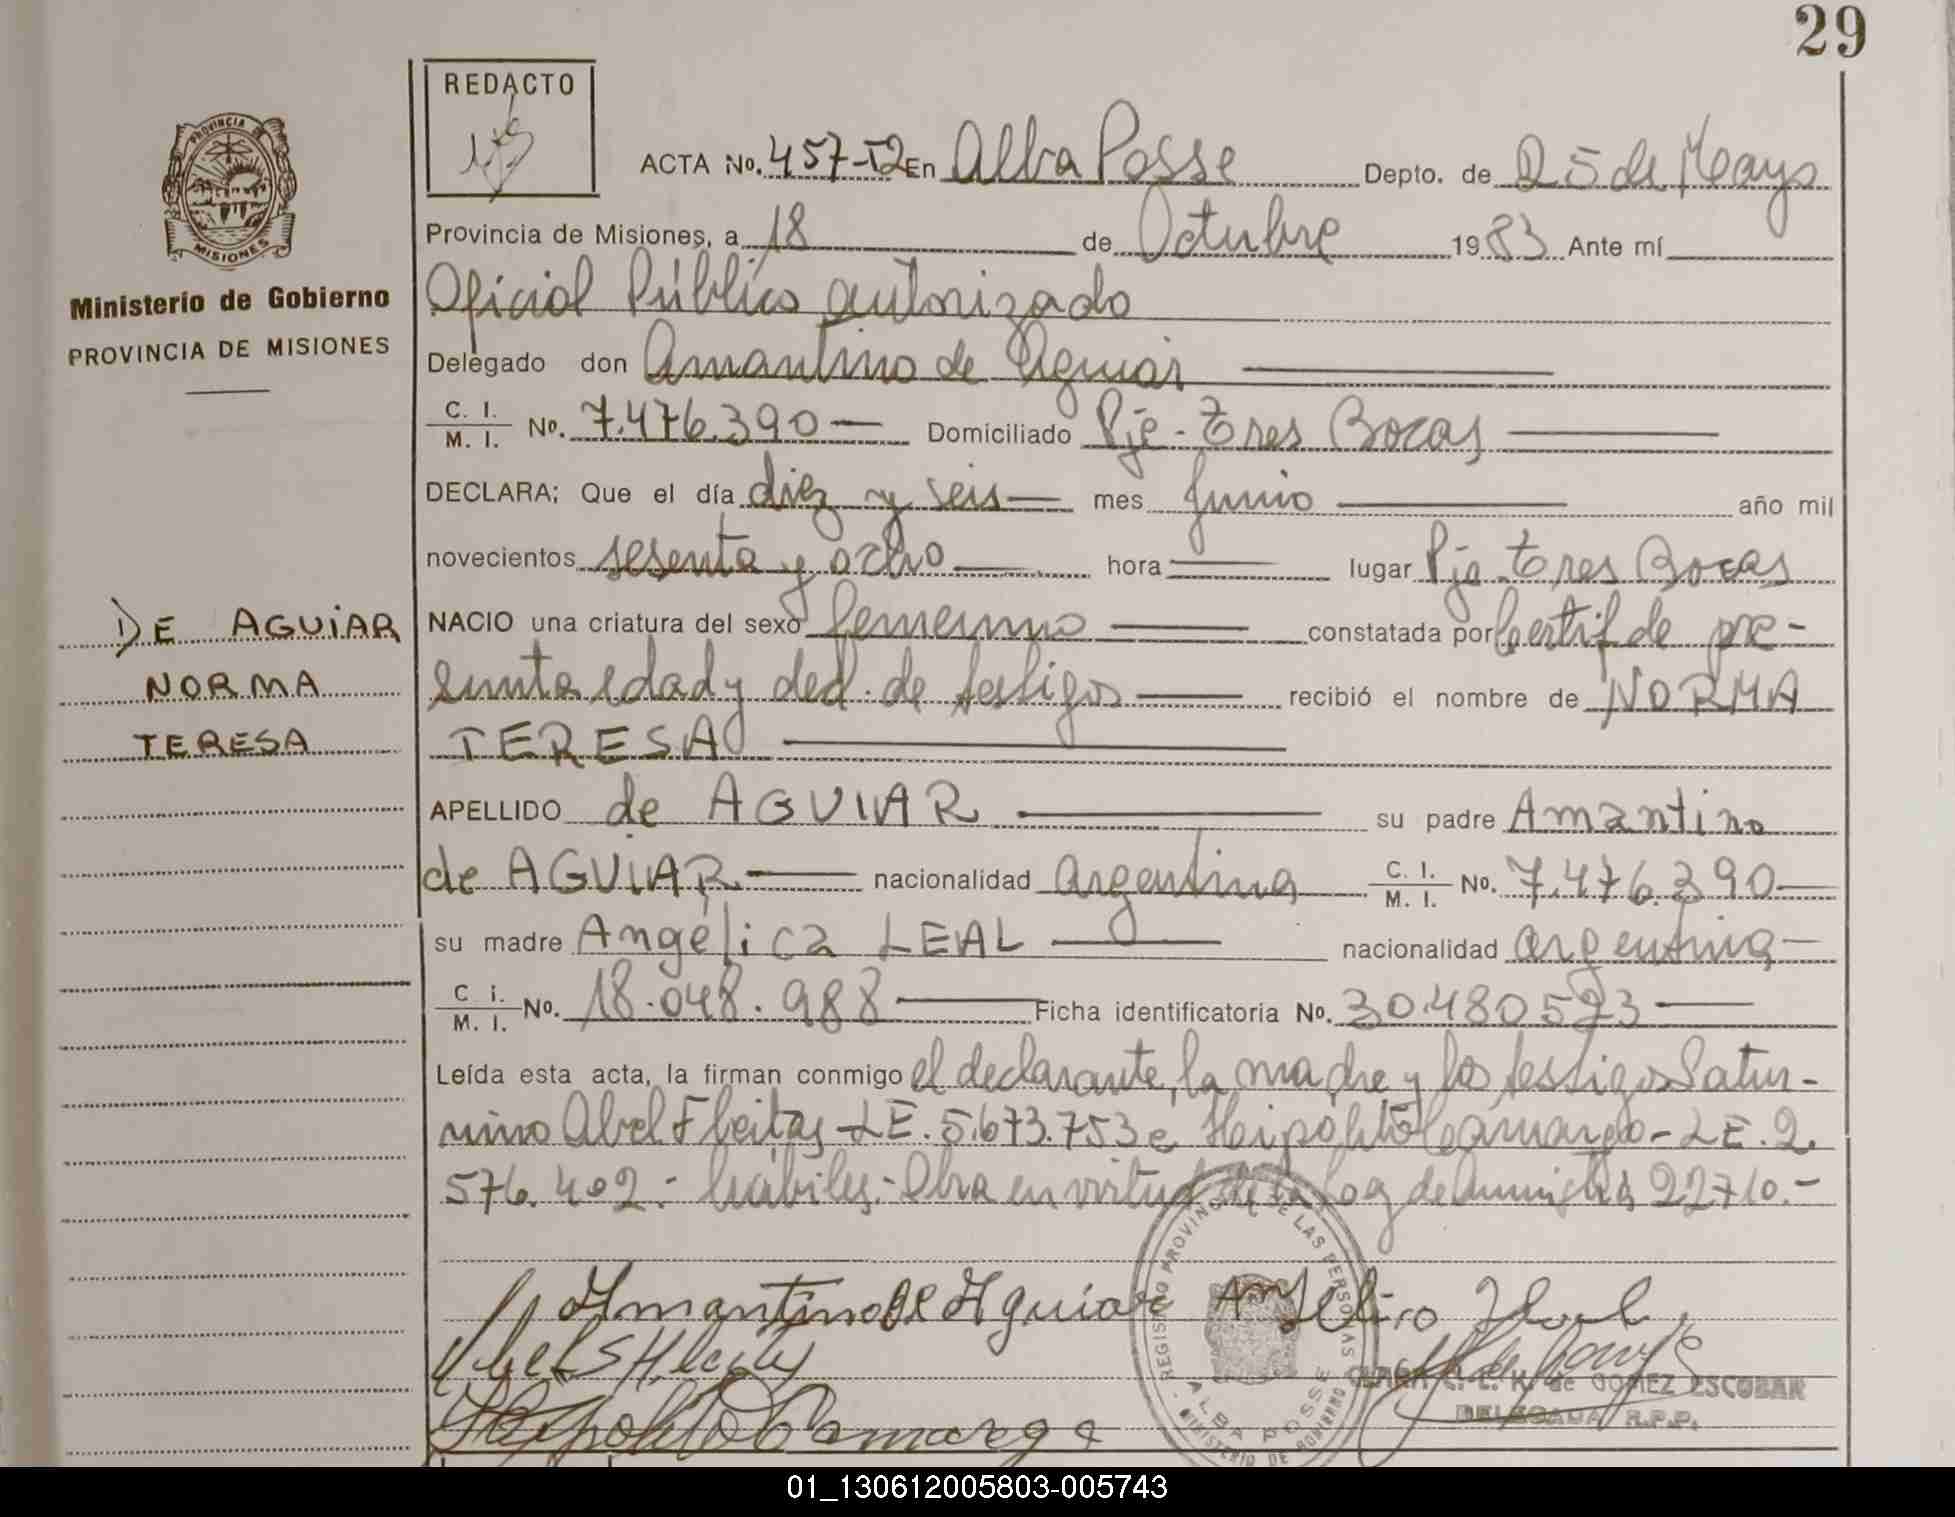 29
REDACTO
PROVINCIA DE
MISIONES
Ministerio de Gobierno
PROVINCIA DE MISIONES
ACTA No. 457-T2 En Alba Posse Depto. de 25 de Mayo
Provincia de Misiones, a 18 de Octubre 1983 Ante mí
Oficial Público autorizado
Delegado don Amantino de Aguiar
C. I. / M. I. No. 7.476.390 Domiciliado Pje. Tres Bocas
DECLARA; Que el día diez y seis mes Junio año mil
novecientos sesenta y ocho hora lugar Pje. Tres Bocas
NACIO una criatura del sexo femenino constatada por Certif de pre-
sunta edad y decl. de testigos recibió el nombre de NORMA
TERESA
DE AGUIAR
NORMA
TERESA
APELLIDO de AGUIAR su padre Amantino
de AGUIAR nacionalidad argentina C. I. / M. I. No. 7.476.390
su madre Angélica LEAL nacionalidad argentina
C. i. / M. I. No. 18.048.988 Ficha identificatoria No. 30480523
Leída esta acta, la firman conmigo el declarante, la madre y los testigos Satur-
nino Abel Fleitas LE. 5.673.753 e Heipolito Camargo - LE. 2.
576.402.- hábiles.- Obra en virtud de la Ley de Amnistía 22710.-
Amantino de Aguiar Angelica Leal
Heipolito Camargo
REGISTRO PROVINCIAL DE LAS PERSONAS
ALBA POSSE
MINISTERIO DE GOBIERNO
de GOMEZ ESCOBAR
DELEGADA R.P.P.
01_130612005803-005743